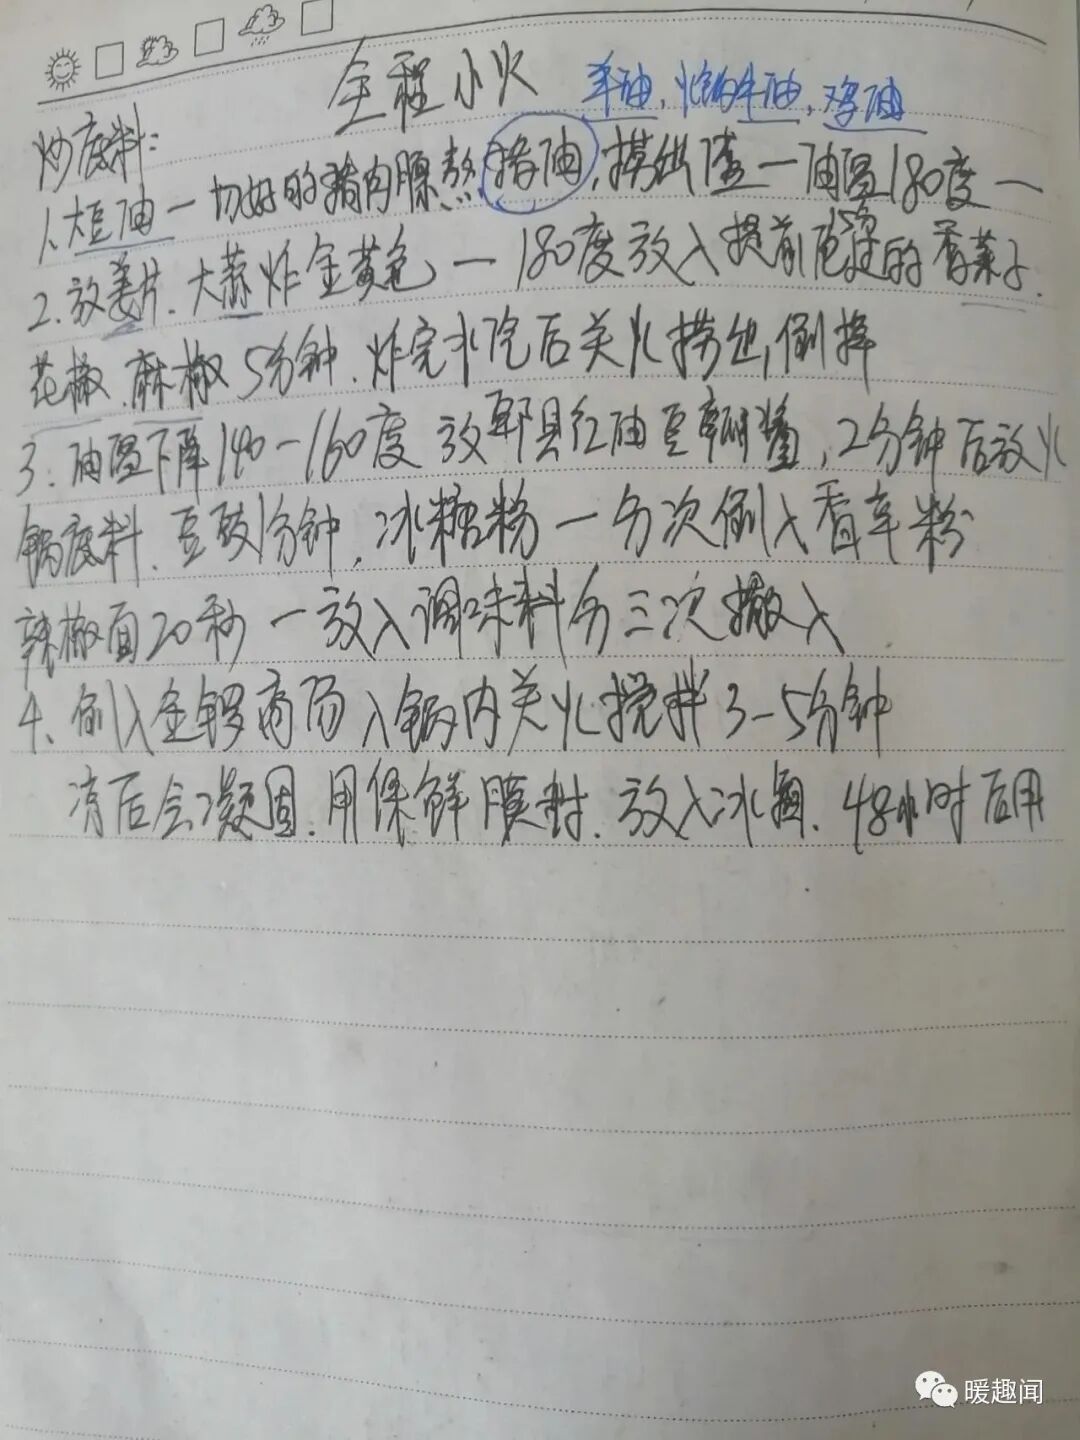 全程小火 羊油,火锅牛油,鸡油
炒底料:
1.大豆油一切好的猪肉膘熬猪油,捞出渣一油温180度一
2.放姜片.大蒜炸金黄色一180度放入提前的香菜子.
花椒.麻椒5分钟.炸完水汽后关火捞出,倒掉
3.油温下降140-160度放郫县红油豆瓣酱,2分钟后放火
锅底料.豆豉1分钟.冰糖粉一分次倒入香辛粉
辣椒面20秒一放入调味料分三次撒入
4.倒入金锣高汤入锅内关火搅拌3-5分钟
后会凝固.用保鲜膜封.放入冰箱.48小时后用
暖趣闻